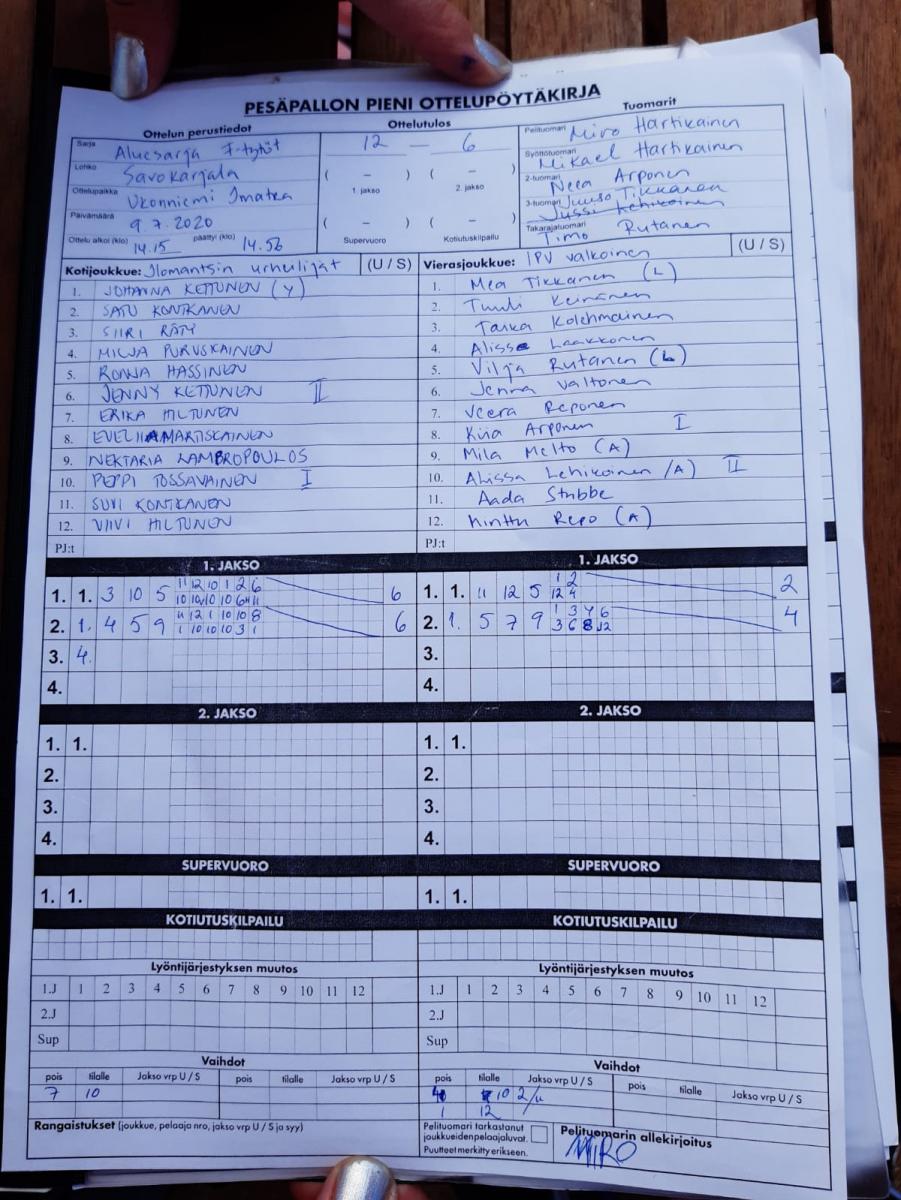 PESÄPALLON PIENI OTTELUPÖYTÄKIRJA
Ottelun perustiedot
Sarja Aluesarja F-tytöt
Lohko Savokarjala
Ottelupaikka Ukonniemi Imatra
Päivämäärä 9.7.2020
Ottelu alkoi (klo) 14.15 päättyi (klo) 14.56
Ottelutulos
12 – 6
( – ) ( – )
1. jakso 2. jakso
( – ) ( – )
Supervuoro Kotiutuskilpailu
Tuomarit
Pelituomari Miro Hartikainen
Syöttötuomari Mikael Hartikainen
2-tuomari Neea Arponen
3-tuomari Juuso Tikkanen
Jussi Lehikoinen
Takarajatuomari Timo Rutanen
Kotijoukkue: Ilomantsin urheilijat (U / S)
1. JOHANNA KETTUNEN (Y)
2. SATU KONTKANEN
3. SIIRI RÄTY
4. MILJA PURUSKAINEN
5. RONJA HASSINEN
6. JENNY KETTUNEN II
7. ERIKA HILTUNEN
8. EVELIINA MARTISKAINEN
9. NEKTARIA LAMBROPOULOS
10. PEPPI TOSSAVAINEN I
11. SUVI KONTKANEN
12. VIIVI HILTUNEN
PJ:t
Vierasjoukkue: IPV valkoinen (U / S)
1. Mea Tikkanen (L)
2. Tuuli Keinänen
3. Taika Kolehmainen
4. Alisse Laakkonen
5. Vilja Rutanen (L)
6. Jenna Valtonen
7. Veera Reponen
8. Kiia Arponen I
9. Mila Melto (A)
10. Alissa Lehikoinen (A) II
11. Aada Stubbe
12. Minttu Repo (A)
PJ:t
1. JAKSO
1. 1. 3 10 5 11 12 10 1 2 6 6
10 10 10 10 6 11
2. 1. 4 5 9 11 12 1 10 10 8 6
1 10 10 10 3 1
3. 4.
4.
1. JAKSO
1. 1. 11 12 5 1 2 2
12 4
2. 1. 5 7 9 1 3 4 6 4
3 6 8 12
3.
4.
2. JAKSO
1. 1.
2.
3.
4.
2. JAKSO
1. 1.
2.
3.
4.
SUPERVUORO
1. 1.
SUPERVUORO
1. 1.
KOTIUTUSKILPAILU
KOTIUTUSKILPAILU
Lyöntijärjestyksen muutos
1.J 1 2 3 4 5 6 7 8 9 10 11 12
2.J
Sup
Lyöntijärjestyksen muutos
1.J 1 2 3 4 5 6 7 8 9 10 11 12
2.J
Sup
Vaihdot
pois tilalle Jakso vrp U / S pois tilalle Jakso vrp U / S
7 10
Vaihdot
pois tilalle Jakso vrp U / S pois tilalle Jakso vrp U / S
10 2/u
1 12
Rangaistukset (joukkue, pelaaja nro, jakso vrp U / S ja syy)
Pelituomari tarkastanut
joukkueidenpelaajaluvat.
Puutteet merkitty erikseen.
Pelituomarin allekirjoitus
MIRO